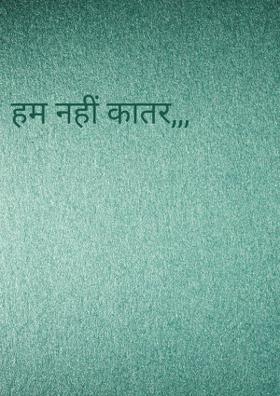 हम नहीं कातर,,,